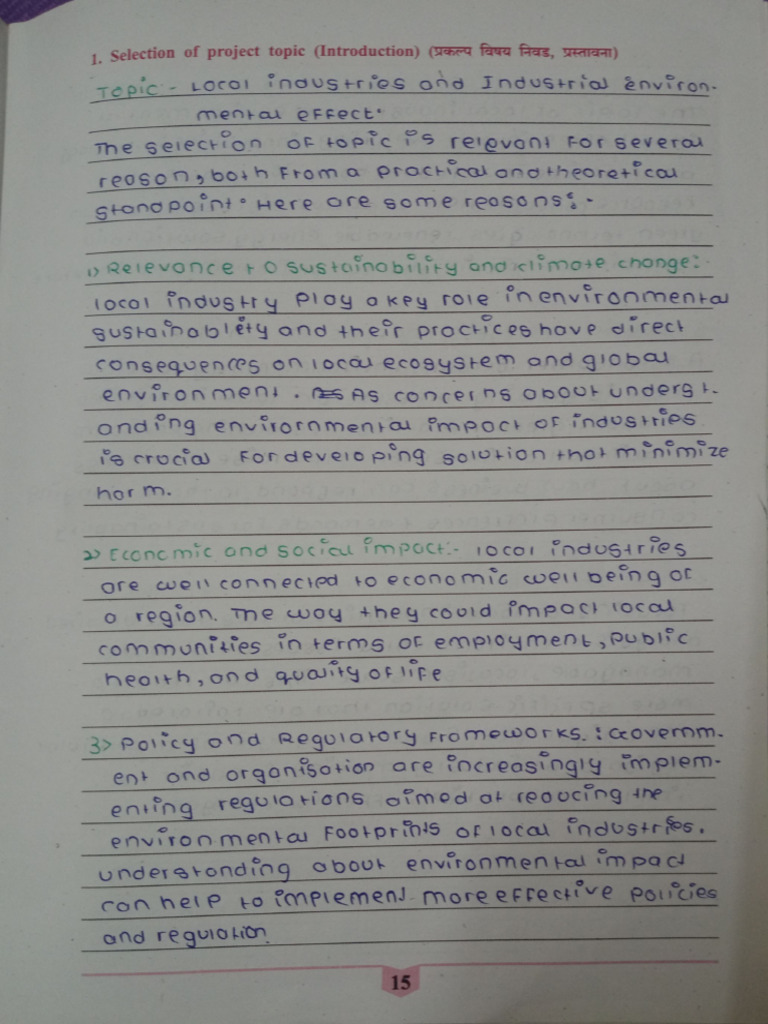 1. Selection of project topic (Introduction) (प्रकल्प विषय निवड, प्रस्तावना)
Topic:- Local industries and Industrial environ-
mental effect.
The selection of topic is relevant for several
reason, both from a practical and theoretical
standpoint. Here are some reasons:-
1) Relevance to sustainability and climate change:-
local industry play a key role in environmental
sustainabliety and their practices have direct
consequences on local ecosystem and global
environment. As concerns about underst-
anding envirornmental impact of industries
is crucial for developing solution that minimize
harm.
2) Economic and social impact:- local industries
are well connected to economic well being of
a region. The way they could impact local
communities in terms of employment, public
health, and quality of life
3) Policy and Regulatory Frameworks. : Governm-
ent and organisation are increasingly implem-
enting regulations aimed at reducing the
environmental footprints of local industries.
understanding about environmental impact
can help to implement more effective policies
and regulation.
15